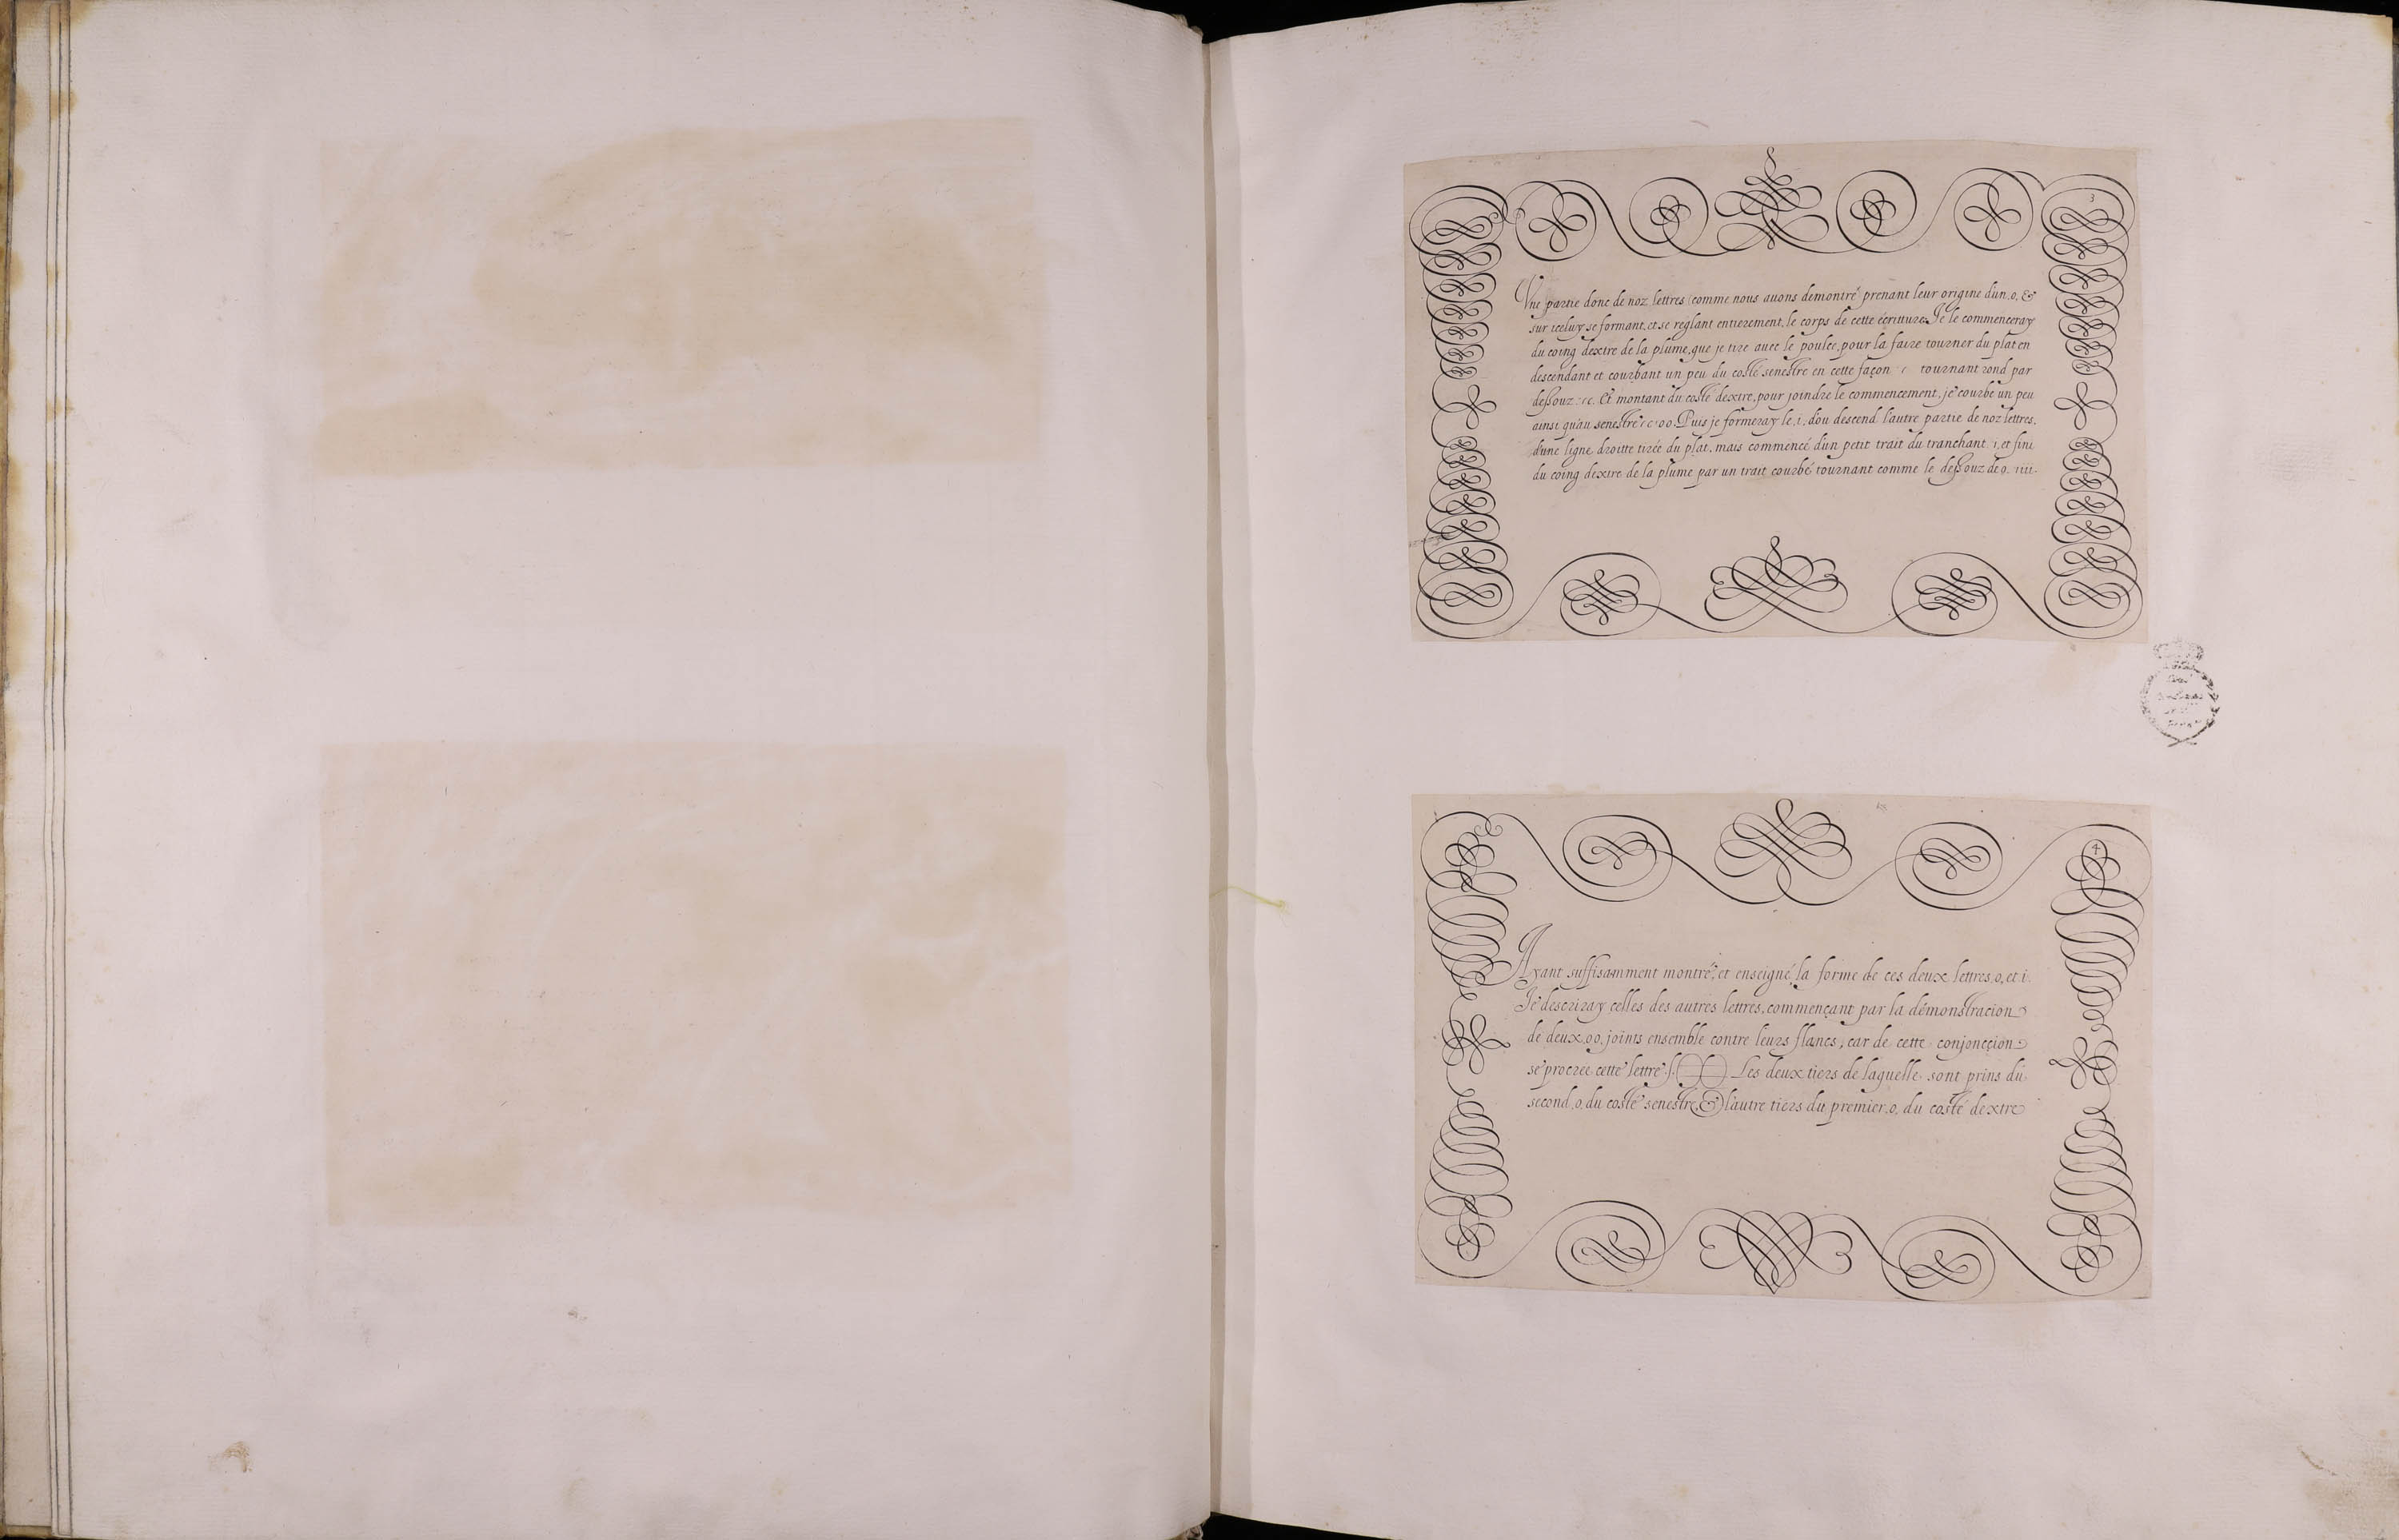 3
Vne partie donc de noz lettres (comme nous auons demontré) prenant leur origine d'un .o. &
sur iceluy se formant, et se reglant entierement, le corps de cette écritture. Je le commenceray
du coing dextre de la plume, que je tire auec le poulce, pour la faire tourner du plat en
descendant et courbant un peu du costé senestre en cette façon ı tournant rond par
dessouz :ıc. Et montant du costé dextre, pour joindre le commencement, je courbe un peu
ainsi qu'au senestre ıcıoo. Puis je formeray le .i. d'ou descend l'autre partie de noz lettres,
d'une ligne droitte tirée du plat, mais commencé d'un petit trait du tranchant ı, et fini
du coing dextre de la plume par un trait courbé tournant comme le dessouz de o. ıııı.
4
Ayant suffisamment montré, et enseigné la forme de ces deux lettres, o, et i.
Je descriray celles des autres lettres, commençant par la démonstracion
de deux .oo. joints ensemble contre leurs flancs; car de cette conjonccion
se procree cette lettre .ſ. Les deux tiers de laquelle sont prins du
second .o. du costé senestre, & l'autre tiers du premier .o. du costé dextre